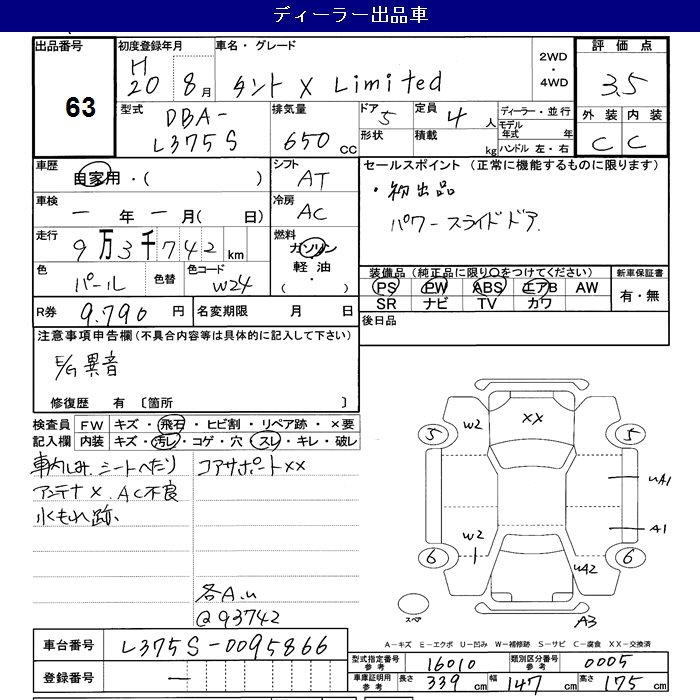 ディーラー出品車
出品番号
63
初度登録年月
H
20 8月
車名・グレード
タント X Limited
2WD
・
4WD
評価点
3.5
外装 内装
C C
型式
DBA-
L375S
排気量
650 cc
ドア 5
形状
定員 4 人
積載 kg
ディーラー・並行
モデル
年式 年
ハンドル 左・右
車歴
自家用・( )
シフト
AT
車検
一年一月( 日)
冷房
AC
走行
9万3千742km
燃料
ガソリン
軽油・
( )
色
パール
色替
色コード
W24
セールスポイント(正常に機能するものに限ります)
・初出品
パワースライドドア
装備品(純正品に限り○をつけてください)
PS PW ABS エアB AW
SR ナビ TV カワ
新車保証書
有・無
後日品
R券 9.790 円
名変期限 月 日
注意事項申告欄(不具合内容等は具体的に記入して下さい)
E/G異音
修復歴 有 〔箇所 〕
検査員
記入欄
FW キズ・飛石・ヒビ割・リペア跡・×要
内装 キズ・汚レ・コゲ・穴・スレ・キレ・破レ
車内しみ、シートへたり
アンテナX、AC不良
水もれ跡、
コアサポートXX
各A.u
@93742
W2
XX
5
5
uA1
A1
W2
1
6
6
uA2
スペア
A3
A−キズ E−エクボ U−凹み W−補修跡 S−サビ C−腐食 XX−交換済
車台番号
L375S-0095866
登録番号
一
型式指定番号
参考
16010
類別区分番号
参考
0005
車庫証明用
参考
長さ 339 cm
幅 147 cm
高さ 175 cm